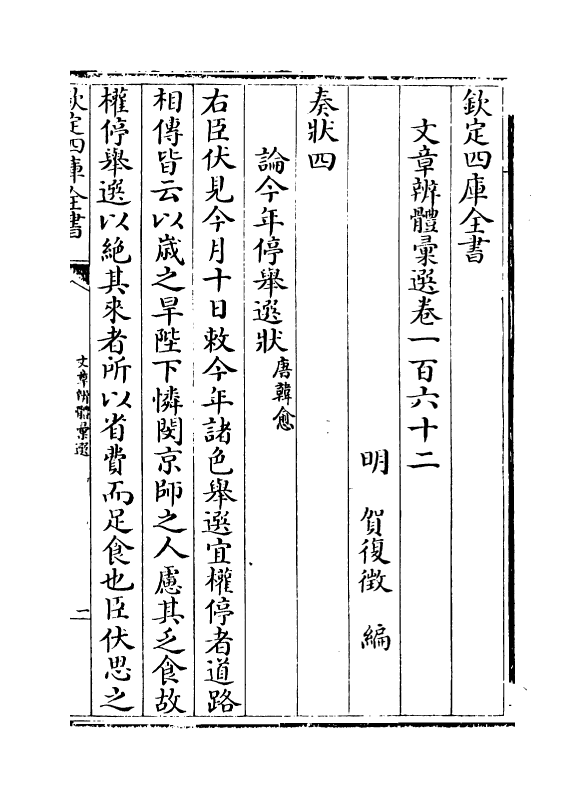 欽定四庫全書
文章辨體彙選卷一百六十二
明　賀復徵　編
奏狀四
論今年停舉選狀唐韓愈
右臣伏見今月十日敕今年諸色舉選宜權停者道路
相傳皆云以歲之旱陛下憐閔京師之人慮其乏食故
權停舉選以絶其來者所以省費而足食也臣伏思之
欽定四庫全書
文章辨體彙選
二